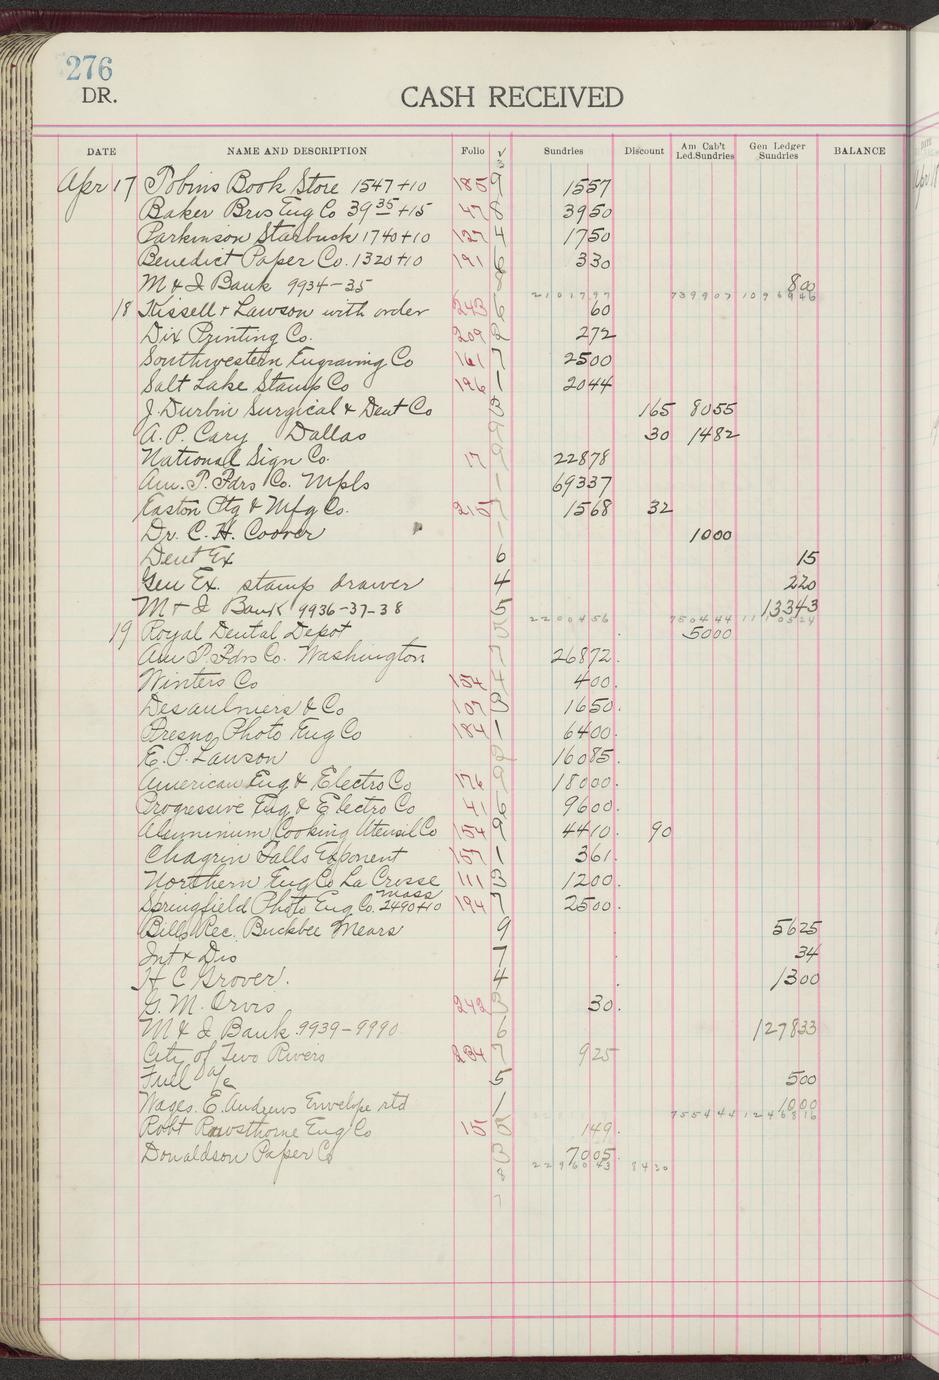 276
DR.
CASH RECEIVED
DATE NAME AND DESCRIPTION Folio √ Sundries Discount Am Cab't Led.Sundries Gen Ledger Sundries BALANCE
3
Apr 17 Tobins Book Store 1547+10 185 9 1557
Baker Bros Eng Co 39 35 +15 47 8 3950
Parkinson Starbuck 1740+10 127 4 1750
Benedict Paper Co. 1320+10 191 6 330
M & I Bank 9934-35 8 800
2101797 739907 1096946
18 Kissell & Lawson with order 243 6 60
Dix Printing Co. 209 2 272
Southwestern Engraving Co 161 7 2500
Salt Lake Stamp Co 196 1 2044
J. Durbin Surgical & Dent Co 3 165 8055
A. P. Cary Dallas 9 30 1482
National Sign Co. 17 9 22878
Am. T. Fdrs Co. Mpls 1 69337
Easton Ptg & Mfg Co. 215 7 1568 32
Dr. C. H. Coover 1 1000
Dent Ex 6 15
Gen Ex. stamp drawer 4 220
M & I Bank 9936-37-38 5 13343
2200456 750444 1110524
19 Royal Dental Depot 5 5000
Am T. Fdrs Co. Washington 7 26872
Winters Co 154 4 400
Desaulniers & Co 107 3 1650
Fresno Photo Eng Co 184 1 6400
E. P. Lawson 2 16085
American Eng & Electro Co 176 9 18000
Progressive Eng & Electro Co 41 6 9600
Aluminium Cooking Utensil Co 154 9 4410 90
Chagrin Falls Exponent 157 1 361
Northern Eng Co La Crosse 111 3 1200
Springfield Photo Eng Co. Mass 2490+10 194 7 2500
Bills Rec. Buckbee Mears 9 5625
Int & Dis 7 34
H C Grover. 4 1300
G. M. Orvis 242 3 30
M & I Bank 9939-9990 6 127833
City of Two Rivers 234 7 925
Fuel a/c 5 500
Wages. E. Andrews Envelope rtd 1 1000
755444 1246816
Robt Rawsthorne Eng Co 15 5 149
Donaldson Paper Co 3 7005
2296043 8430
8
7